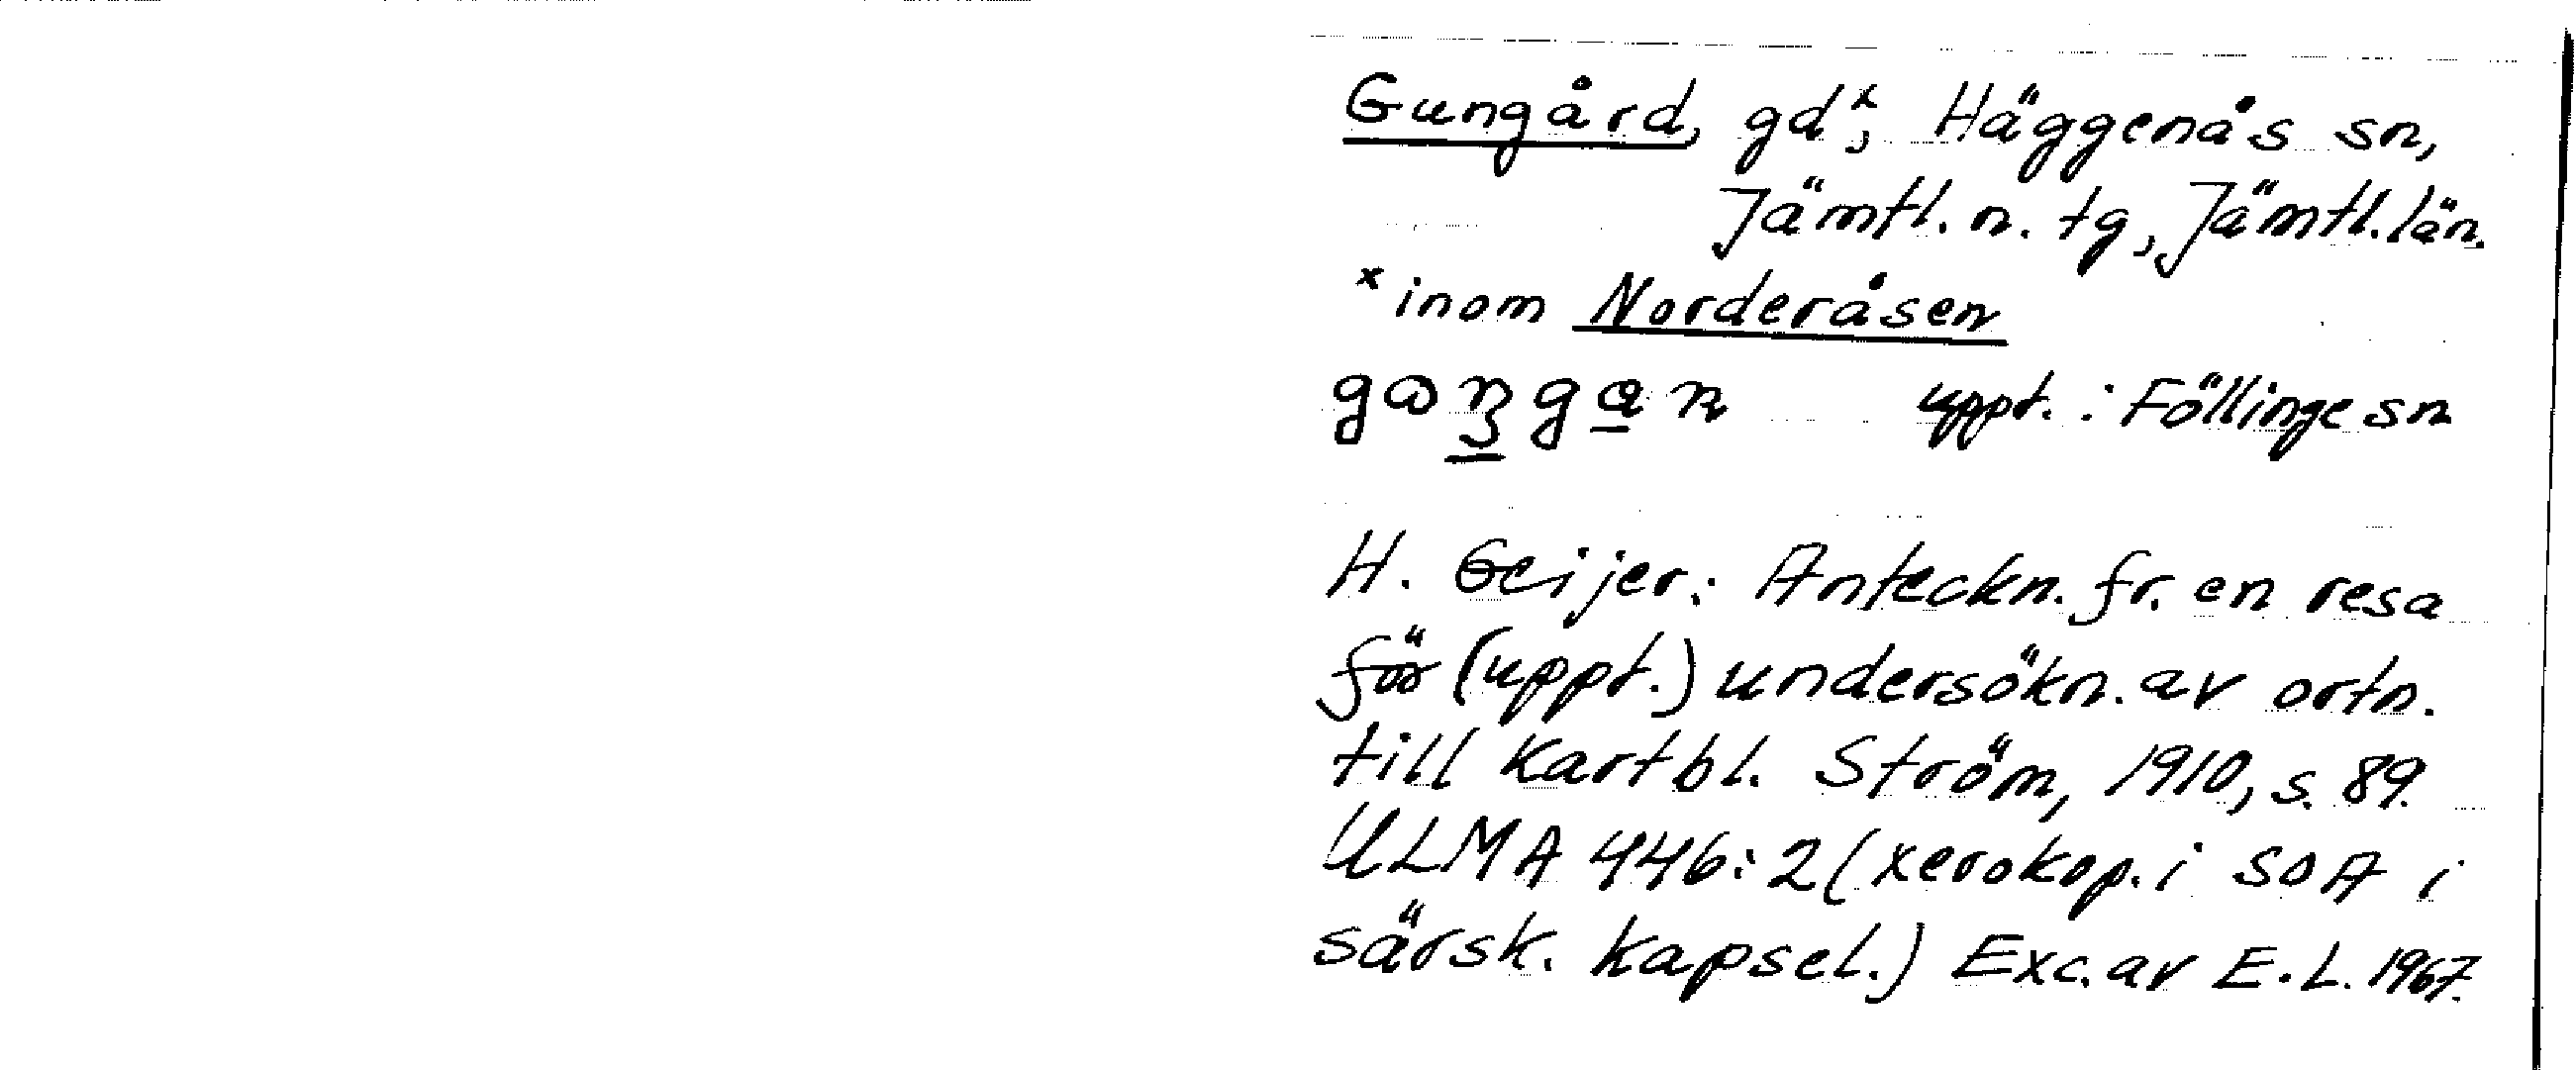 Gungård, gd x, Häggenås sn,
Jämtl. n. tg, Jämtl. län.
x inom Norderåsen
uppt. : Föllinge sn
H. Geijer: Anteckn. fr. en resa
för (uppt.) undersökn. av ortn.
till Kartbl. Ström, 1910, s. 89.
ULMA 446:2 (xerokop. i SOA i
särsk. kapsel.) Exc. av E. L. 1967.